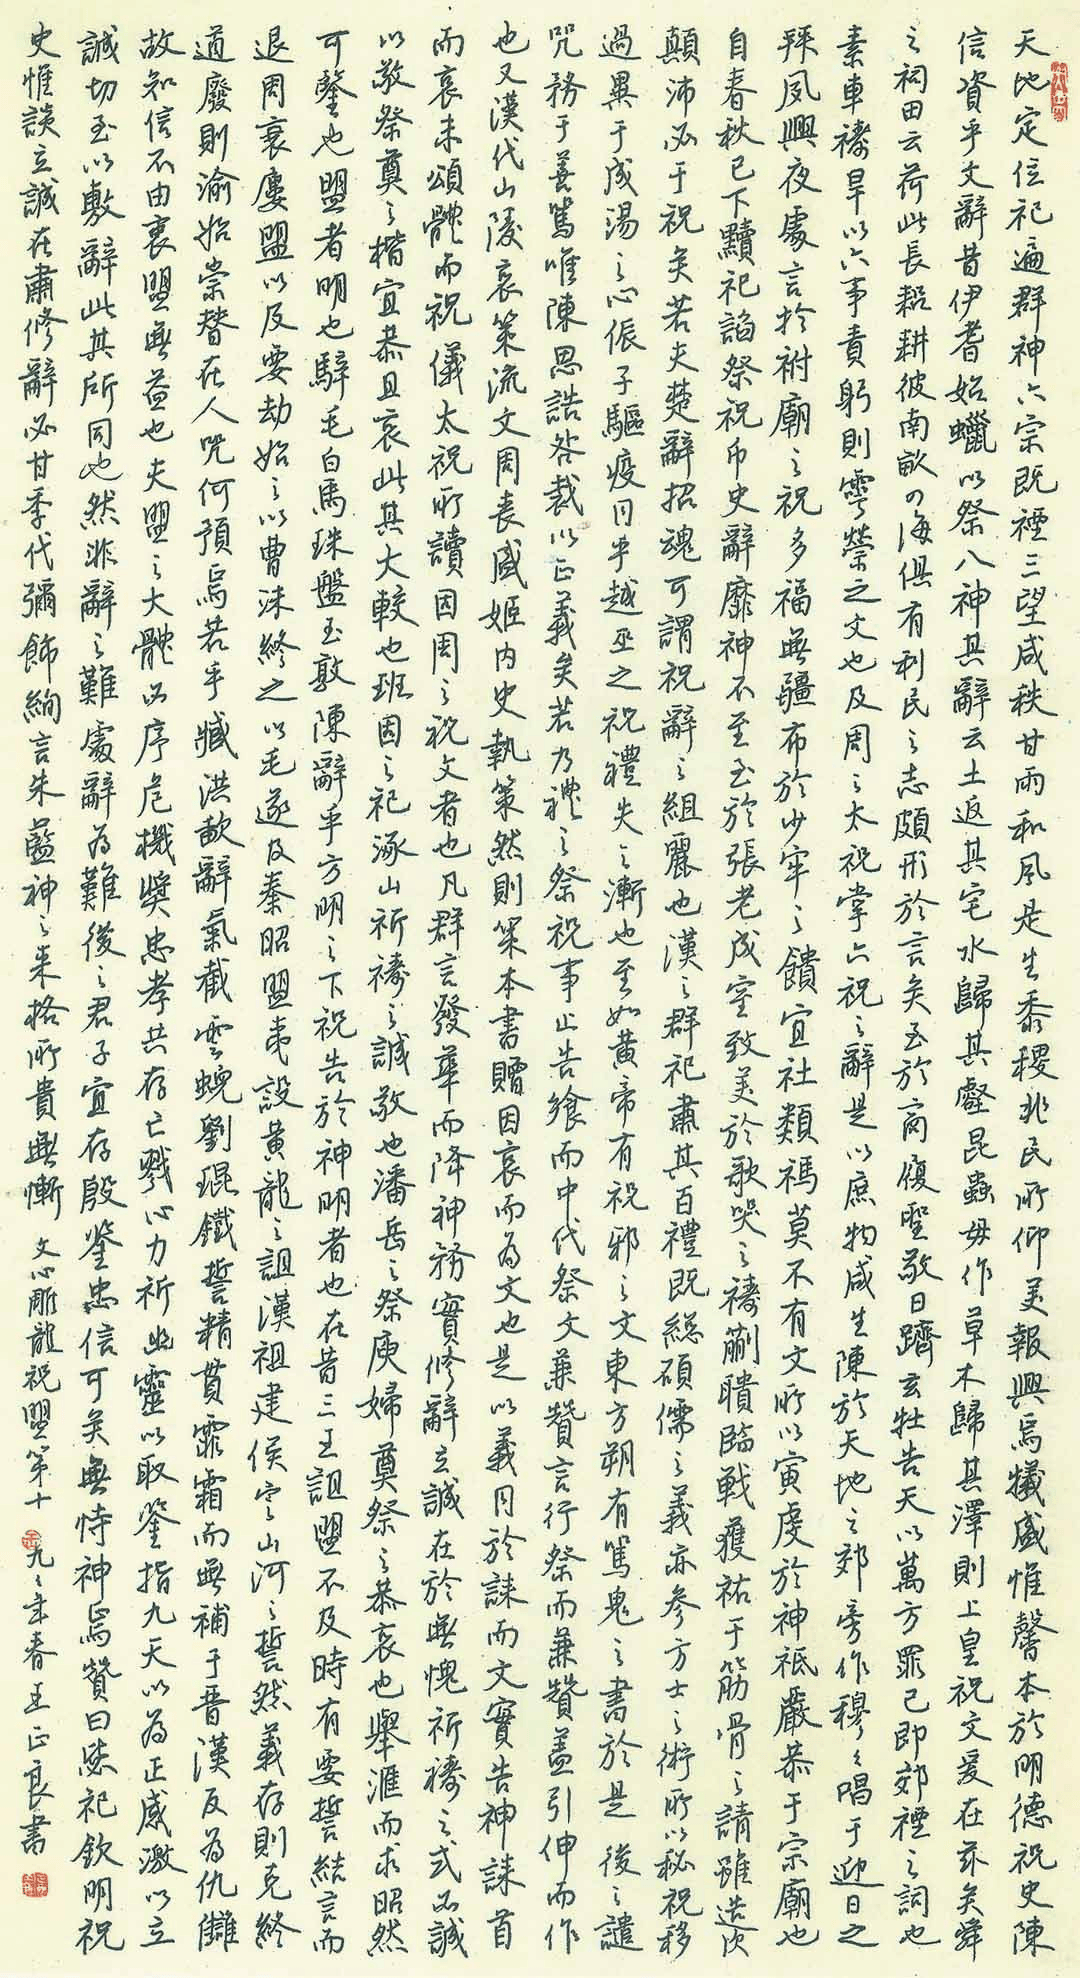 天地定位祀遍群神六宗既禋三望咸秩甘雨和風是生黍稷兆民所仰美報興焉犧盛惟馨本於明德祝史陳
信資乎文辭昔伊耆始蠟以祭八神其辭云土返其宅水歸其壑昆蟲毋作草木歸其澤則上皇祝文爰在茲矣舜
之祠田云荷此長耜耕彼南畝四海俱有利民之志頗形於言矣至於商履聖敬日躋玄牡告天以萬方罪己即郊禋之詞也
素車禱旱以六事責躬則雩禜之文也及周之太祝掌六祝之辭是以庶物咸生陳於天地之郊旁作穆々唱于迎日之
拜夙興夜處言於祔廟之祝多福無疆布於少牢之饋宜社類禡莫不有文所以寅虔於神祇嚴恭于宗廟也
自春秋已下黷祀諂祭祝币史辭靡神不至至於張老成室致美於歌哭之禱蒯聵臨戰獲祐于筋骨之請雖造次
顛沛必于祝矣若夫楚辭招魂可謂祝辭之組麗也漢之群祀肅其百禮既總碩儒之義亦參方士之術所以秘祝移
過異于成湯之心侲子驅疫同乎越巫之祝禮失之漸也至如黃帝有祝邪之文東方朔有罵鬼之書於是後之譴
咒務于善罵唯陳思誥咎裁以正義矣若乃禮之祭祝事止告飨而中代祭文兼贊言行祭而兼贊蓋引伸而作
也又漢代山陵哀策流文周喪盛姬内史執策然則策本書贈因哀而為文也是以義同於誄而文實告神誄首
而哀末頌體而祝儀太祝所讀因周之祝文者也凡群言發華而降神務實修辭立誠在於無愧祈禱之式必誠
以敬祭奠之楷宜恭且哀此其大較也班固之祀涿山祈禱之誠敬也潘岳之祭庾婦奠祭之恭哀也舉滙而求昭然
可鑒也盟者明也騂毛白馬珠盤玉敦陳辭乎方明之下祝告於神明者也在昔三王詛盟不及時有要誓結言而
退周衰屢盟以及要劫始之以曹沫終之以毛遂及秦昭盟夷設黃龍之詛漢祖建侯定山河之誓然義存則克終
道廢則渝始崇替在人咒何預焉若乎臧洪歃辭氣截雲蜺劉琨鐵誓精貫霏霜而無補于晉漢反為仇讎
故知信不由衷盟無益也夫盟之大體必序危機獎忠孝共存亡戮心力祈幽靈以取鑒指九天以為正感激以立
誠切至以敷辭此其所同也然非辭之難處辭為難後之君子宜存殷鑒忠信可矣無恃神焉贊曰毖祀欽明祝
史惟談立誠在肅修辭必甘季代彌飾絢言朱藍神之來格所貴無慚 文心雕龍祝盟第十 一九九々年春王正良書